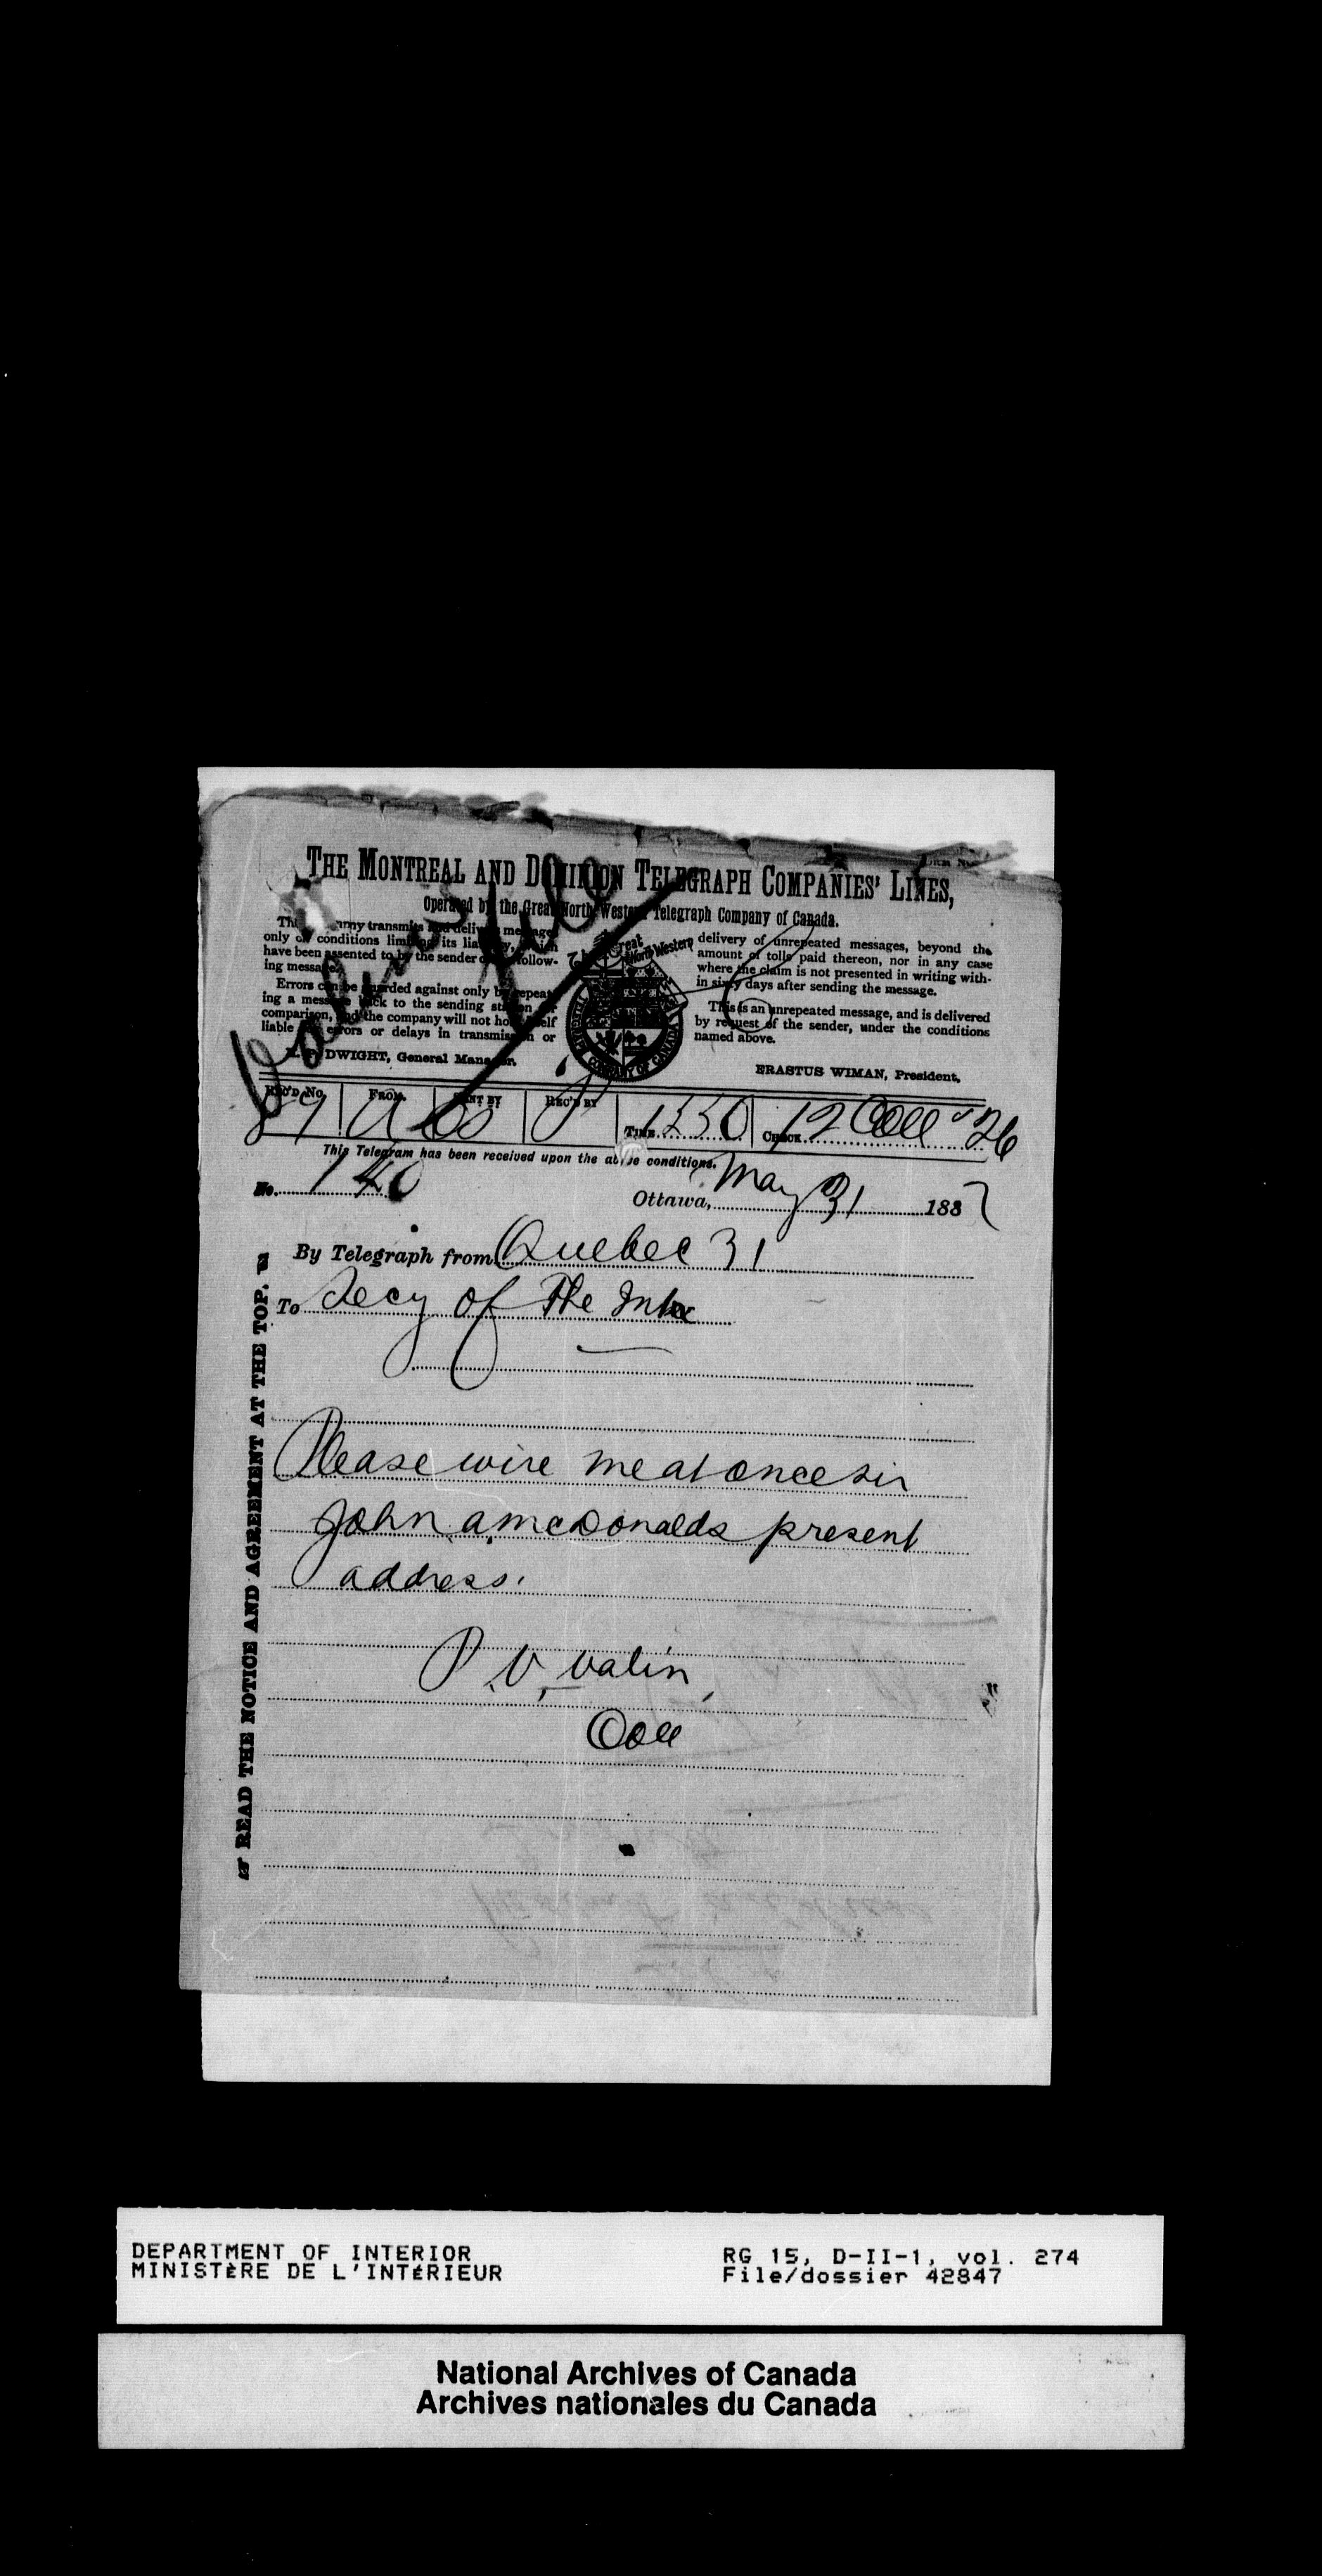 THE MONTREAL AND DOMINION TELEGRAPH COMPANIES' LINES,
Operated by the Great North Western Telegraph Company of Canada.
This Company transmits and delivers messages
only on conditions limiting its liability, which
have been assented to by the sender of the follow-
ing message.
Errors can be guarded against only by repeat-
ing a message back to the sending station for
comparison, and the company will not hold itself
liable for errors or delays in transmission or
delivery of unrepeated messages, beyond the
amount of tolls paid thereon, nor in any case
where the claim is not presented in writing with-
in sixty days after sending the message.
This is an unrepeated message, and is delivered
by request of the sender, under the conditions
named above.
DWIGHT, General Manager.
ERASTUS WIMAN, President.
Great North Western
REC'D No. FROM. SENT BY REC'D BY TIME 1250 CHECK 12 Coll 26
This Telegram has been received upon the above conditions.
No. 140
Ottawa, May 31 1887
By Telegraph from Quebec 31
To Secy of The Inter
Please wire me at once sir
John a mcDonalds present
address.
P. V. Valin,
Coll
READ THE NOTICE AND AGREEMENT AT THE TOP.
DEPARTMENT OF INTERIOR
MINISTÈRE DE L'INTÉRIEUR
RG 15, D-II-1, vol. 274
File/dossier 42847
National Archives of Canada
Archives nationales du Canada